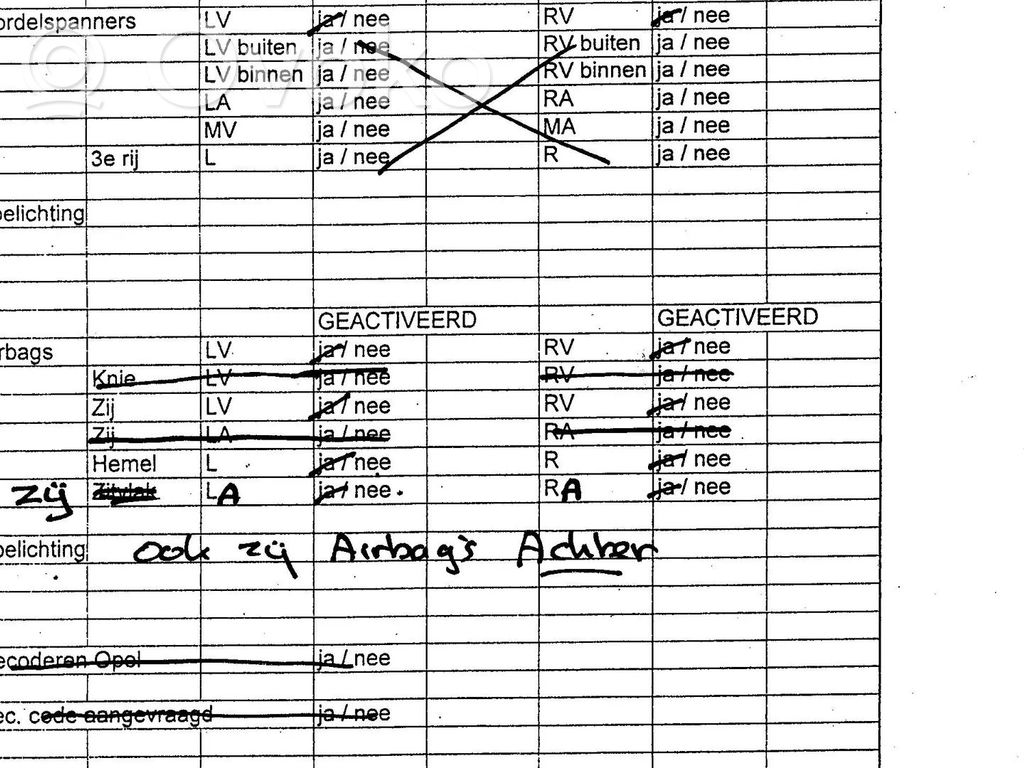 ordelspanners LV ja / nee RV ja / nee
LV buiten ja / nee RV buiten ja / nee
LV binnen ja / nee RV binnen ja / nee
LA ja / nee RA ja / nee
MV ja / nee MA ja / nee
3e rij L ja / nee R ja / nee
oelichting
GEACTIVEERD GEACTIVEERD
rbags LV ja / nee RV ja / nee
Knie LV ja / nee RV ja / nee
Zij LV ja / nee RV ja / nee
Zij LA ja / nee RA ja / nee
Hemel L ja / nee R ja / nee
zij Zitvlak LA ja / nee RA ja / nee
oelichting ook zij Airbag's Achter
ecoderen Opel ja / nee
ec. code aangevraagd ja / nee